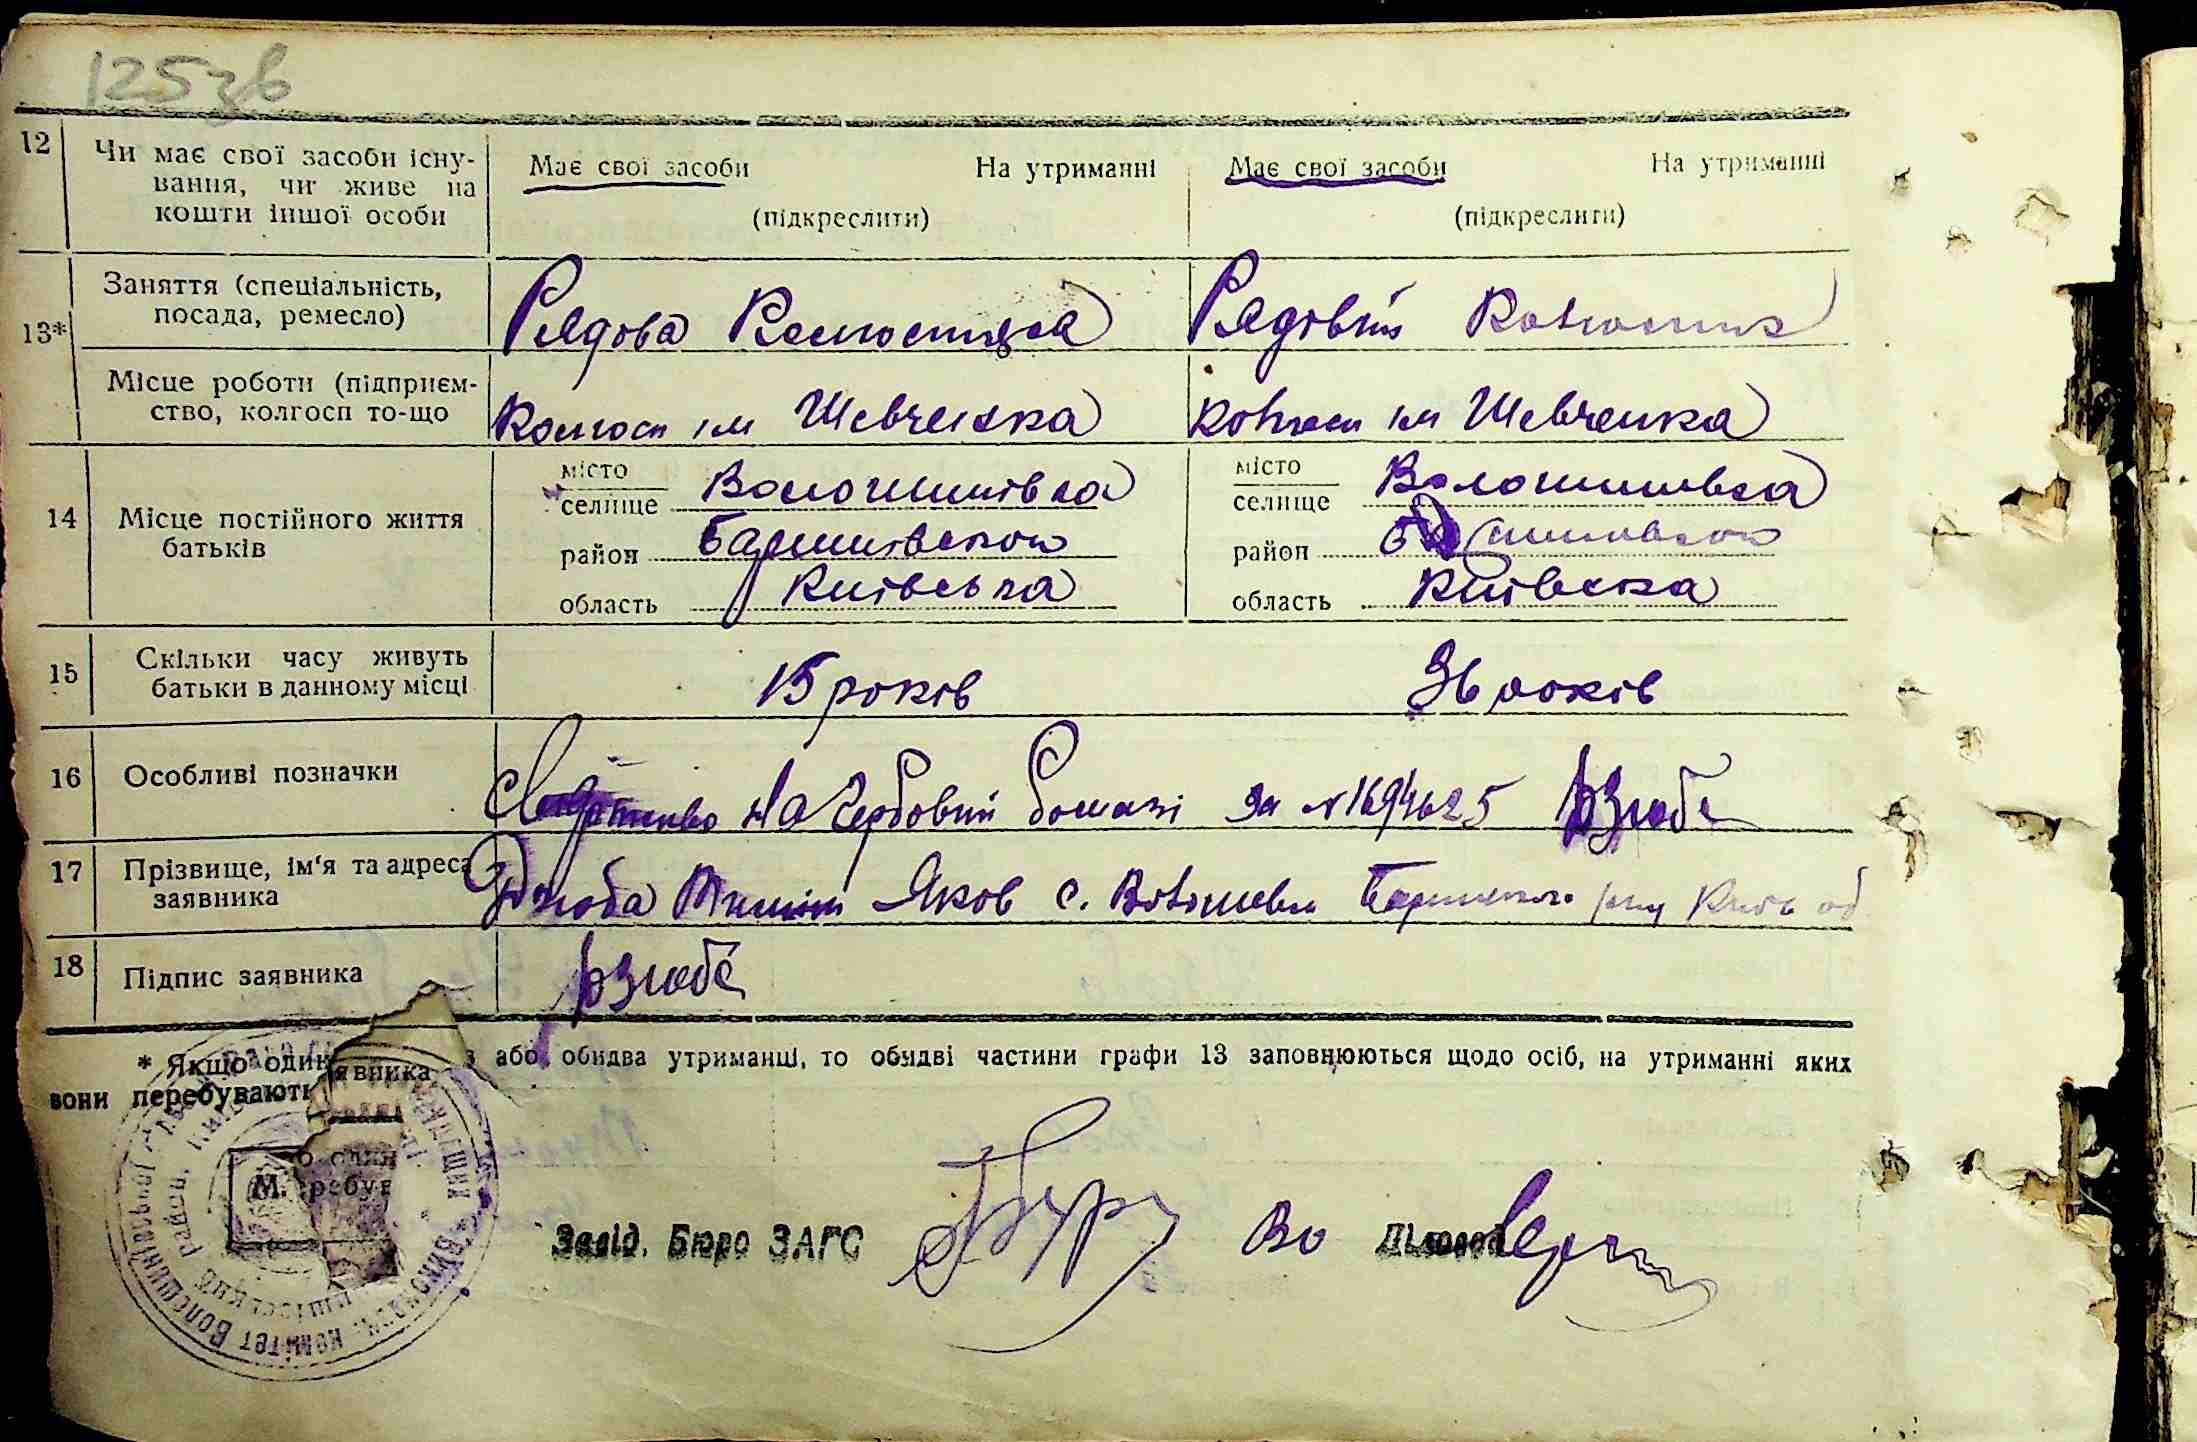 125зв
12 Чи має свої засоби існу-
вання, чи живе на
кошти іншої особи
Має свої засоби На утриманні
(підкреслити)
Має свої засоби На утриманні
(підкреслити)
13* Заняття (спеціальність,
посада, ремесло)
Рядова Колгоспниця
Рядовий Колгоспник
Місце роботи (підприєм-
ство, колгосп то-що
Колгосп ім Шевченка
Колгосп ім Шевченка
14 Місце постійного життя
батьків
місто
селище Волошинівка
район Баришівського
область Київська
місто
селище Волошинівка
район
область Київська
15 Скільки часу живуть
батьки в данному місці
15 років
36 років
16 Особливі позначки
на гербовій бомазі за №1694625 Дзюба
17 Прізвище, ім'я та адреса
заявника
Дзюба Яков с.
18 Підпис заявника
Дзюба
* Якщо один або обидва утриманці, то обидві частини графи 13 заповнюються щодо осіб, на утриманні яких
вони перебувають
явника
М.
Завід. Бюро ЗАГС Во Діловод